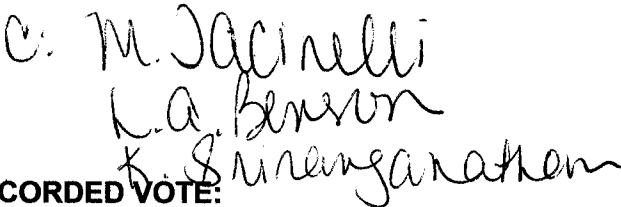 C: M. Iacinelli
L.A. Benson
K. Sriranganatham
CORDED VOTE: